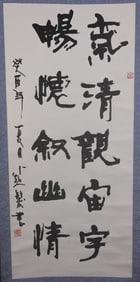 氣清觀宙宇
暢懷叙幽情
癸酉年